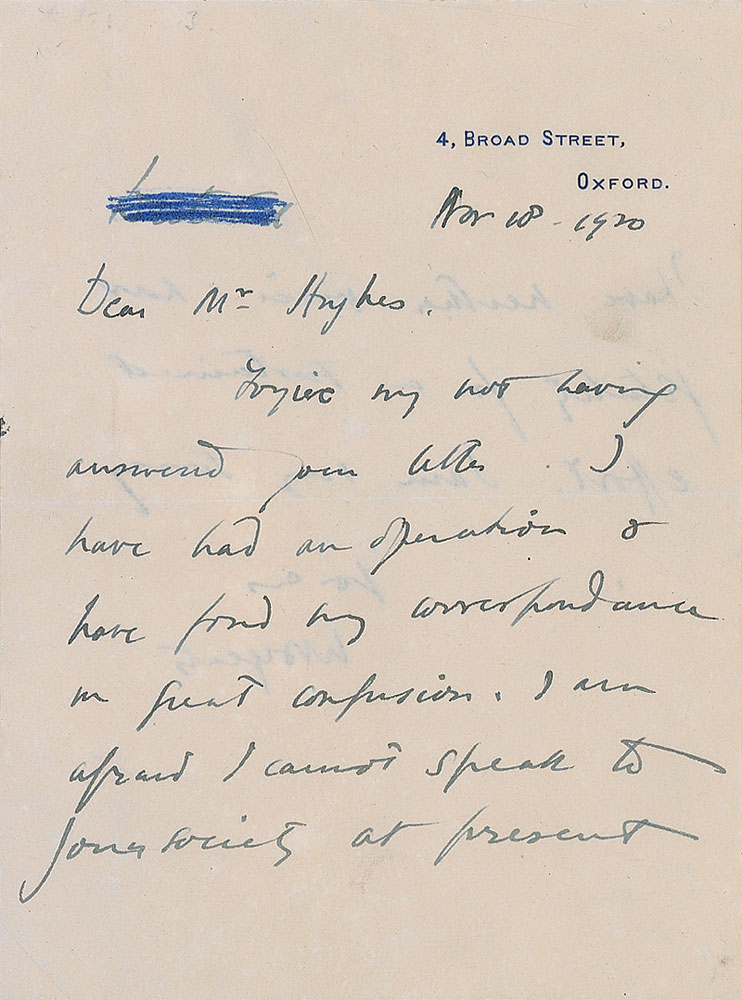 4, BROAD STREET,
OXFORD.
Nov 18 - 1920
Dear Mr Hughes.
Forgive my not having
answered your letter. I
have had an operation &
have found my correspondance
in great confusion. I am
afraid I cannot speak to
your society at present